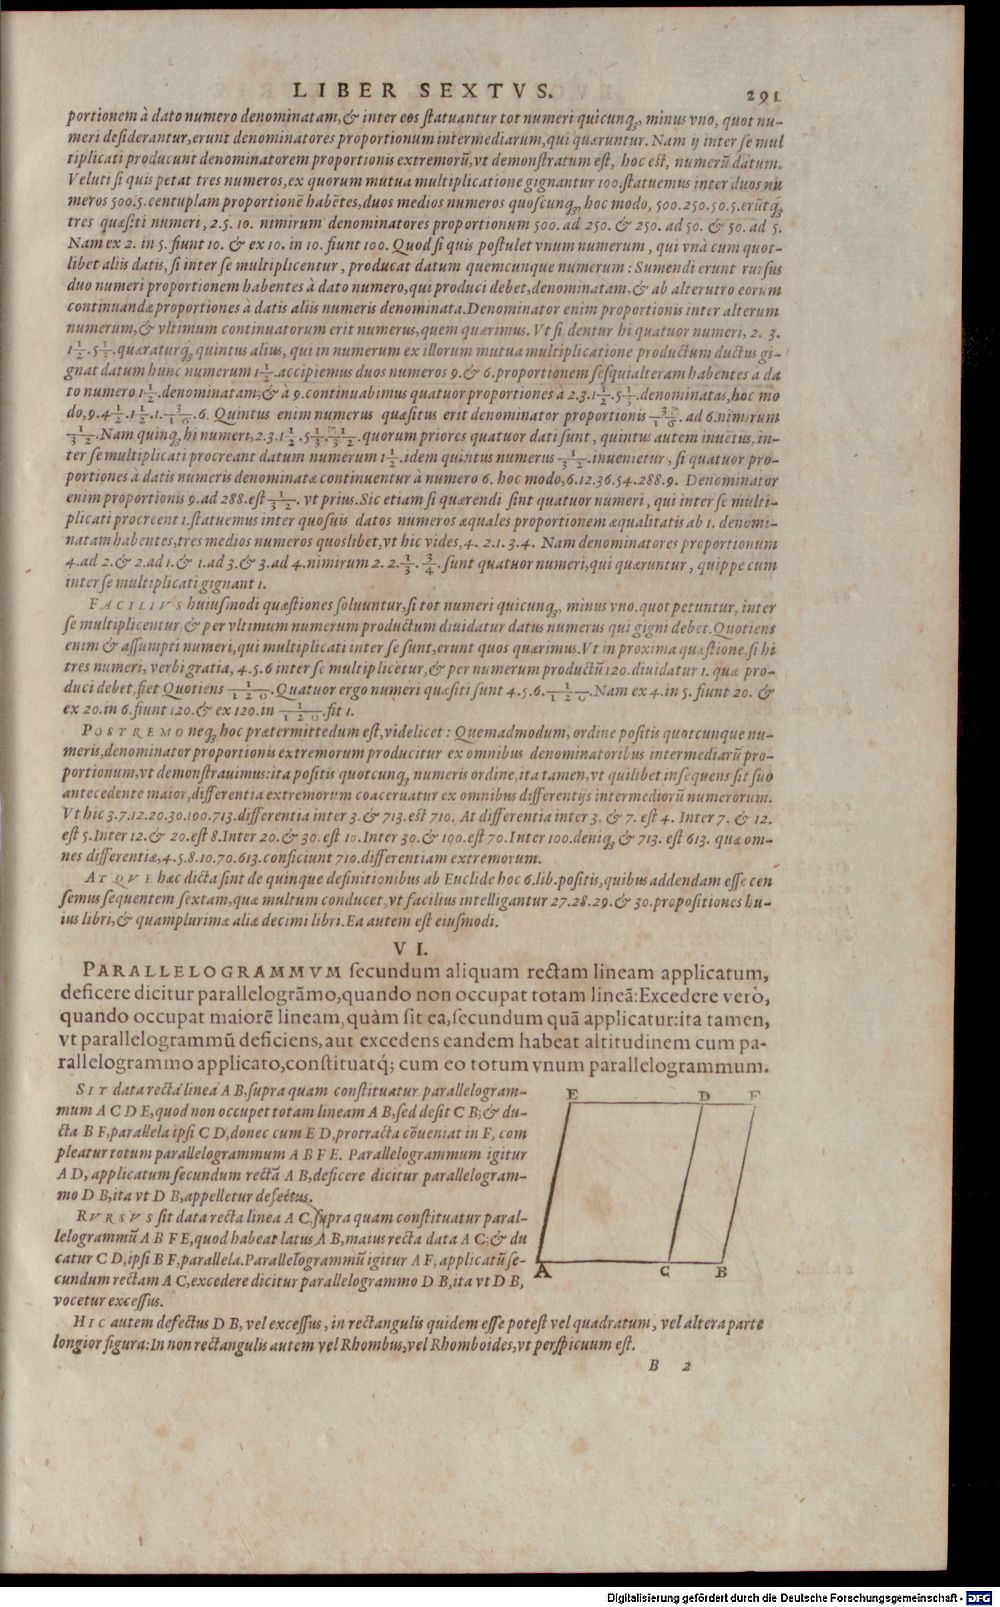 LIBER SEXTVS. 291
portionem à dato numero denominatam,& inter eos ſtatuantur tot numeri quicunq;, minus vno, quot nu-
meri deſiderantur,erunt denominatores proportionum intermediarum,qui quæruntur. Nam ij inter ſe mul
tiplicati producunt denominatorem proportionis extremorũ,vt demonſtratum eſt, hoc eſt, numerũ datum.
Veluti ſi quis petat tres numeros,ex quorum mutua multiplicatione gignantur 100.ſtatuemus inter duos nu
meros 500.5.centuplam proportionẽ habẽtes,duos medios numeros quoſcunq;, hoc modo, 500.250.50.5.erũtq;
tres quæſiti numeri, 2.5. 10. nimirum denominatores proportionum 500. ad 250. & 250. ad 50. & 50. ad 5.
Nam ex 2. in 5. fiunt 10. & ex 10. in 10. fiunt 100. Quod ſi quis poſtulet vnum numerum, qui vnà cum quot-
libet aliis datis, ſi inter ſe multiplicentur, producat datum quemcunque numerum: Sumendi erunt rurſus
duo numeri proportionem habentes à dato numero,qui produci debet,denominatam,& ab alterutro eorum
continuandæ proportiones à datis aliis numeris denominata.Denominator enim proportionis inter alterum
numerum,& vltimum continuatorum erit numerus,quem quærimus. Vt ſi dentur hi quatuor numeri, 2. 3.
1 1/2 . 5 1/3 .quæraturq; quintus alius, qui in numerum ex illorum mutua multiplicatione productum ductus gi-
gnat datum hunc numerum 1 1/2 .accipiemus duos numeros 9.& 6.proportionem ſeſquialteram habentes a da
to numero 1 1/2 .denominatam;& à 9.continuabimus quatuor proportiones à 2.3.1 1/2 .5 1/3 .denominatas,hoc mo
do,9.4 1/2 .1 1/2 .1. 3/16 .6. Quintus enim numerus quæſitus erit denominator proportionis 3/16 . ad 6.nimirum
1/32 .Nam quinq; hi numeri,2.3.1 1/2 .5 1/3 . 1/32 .quorum priores quatuor dati ſunt, quintus autem inuẽtus,in-
ter ſe multiplicati procreant datum numerum 1 1/2 .idem quintus numerus 1/32 .inuenietur, ſi quatuor pro-
portiones à datis numeris denominatæ continuentur à numero 6. hoc modo,6.12.36.54.288.9. Denominator
enim proportionis 9.ad 288.eſt 1/32 . vt prius.Sic etiam ſi quærendi ſint quatuor numeri, qui inter ſe multi-
plicati procreent 1.ſtatuemus inter quoſuis datos numeros æquales proportionem æqualitatis ab 1. denomi-
natam habentes,tres medios numeros quoslibet,vt hic vides,4. 2.1. 3.4. Nam denominatores proportionum
4.ad 2.& 2.ad 1.& 1.ad 3.& 3.ad 4.nimirum 2. 2. 1/3 . 3/4 . ſunt quatuor numeri,qui quæruntur, quippe cum
inter ſe multiplicati gignant 1.
FACILIVS huiuſmodi quæſtiones ſoluuntur,ſi tot numeri quicunq;, minus vno,quot petuntur, inter
ſe multiplicentur,& per vltimum numerum productum diuidatur datus numerus qui gigni debet.Quotiens
enim & aſſumpti numeri,qui multiplicati inter ſe ſunt,erunt quos quærimus.Vt in proxima quæſtione,ſi hi
tres numeri, verbi gratia, 4.5.6 inter ſe multiplicẽtur,& per numerum productũ 120.diuidatur 1. quæ pro-
duci debet,fiet Quotiens 1/120 .Quatuor ergo numeri quæſiti ſunt 4.5.6. 1/120 .Nam ex 4.in 5. fiunt 20. &
ex 20.in 6.fiunt 120.& ex 120.in 1/120 .fit 1.
POSTREMO neq; hoc prætermittedum eſt,videlicet: Quemadmodum, ordine poſitis quotcunque nu-
meris,denominator proportionis extremorum producitur ex omnibus denominatoribus intermediarũ pro-
portionum,vt demonſtrauimus:ita poſitis quotcunq; numeris ordine,ita tamen,vt quilibet inſequens ſit ſuo
antecedente maior,differentia extremorum coaceruatur ex omnibus differentijs intermediorũ numerorum.
Vt hic 3.7.12.20.30.100.713.differentia inter 3.& 713.eſt 710. At differentia inter 3. & 7. eſt 4. Inter 7. & 12.
eſt 5.Inter 12.& 20.eſt 8.Inter 20.& 30.eſt 10.Inter 30.& 100.eſt 70.Inter 100.deniq; & 713. eſt 613. quæ om-
nes differentiæ,4.5.8.10.70.613.conficiunt 710.differentiam extremorum.
ATQVE hæc dicta ſint de quinque definitionibus ab Euclide hoc 6.lib.poſitis,quibus addendam eſſe cen
ſemus ſequentem ſextam,quæ multum conducet,vt facilius intelligantur 27.28.29.& 30.propoſitiones hu-
ius libri,& quamplurimæ aliæ decimi libri.Ea autem eſt eiuſmodi.
VI.
PARALLELOGRAMMVM ſecundum aliquam rectam lineam applicatum,
deficere dicitur parallelogrãmo,quando non occupat totam lineã:Excedere verò,
quando occupat maiorẽ lineam,quàm ſit ea,ſecundum quã applicatur:ita tamen,
vt parallelogrammũ deficiens,aut excedens eandem habeat altitudinem cum pa-
rallelogrammo applicato,conſtituatq; cum eo totum vnum parallelogrammum.
SIT data recta linea A B,ſupra quam conſtituatur parallelogram-
mum A C D E,quod non occupet totam lineam A B,ſed deſit C B;& du-
cta B F,parallela ipſi C D,donec cum E D,protracta cõueniat in F, com
pleatur totum parallelogrammum A B F E. Parallelogrammum igitur
A D, applicatum ſecundum rectã A B,deficere dicitur parallelogram-
mo D B,ita vt D B,appelletur defectus.
RVRSVS ſit data recta linea A C,ſupra quam conſtituatur paral-
lelogrammũ A B F E,quod habeat latus A B,maius recta data A C;& du
catur C D,ipſi B F,parallela.Parallelogrammũ igitur A F,applicatũ ſe-
cundum rectam A C,excedere dicitur parallelogrammo D B,ita vt D B,
vocetur exceſſus.
E D F
A C B
HIC autem defectus D B, vel exceſſus, in rectangulis quidem eſſe poteſt vel quadratum, vel altera parte
longior figura:In non rectangulis autem vel Rhombus,vel Rhomboides,vt perſpicuum eſt.
B 2
Digitalisierung gefördert durch die Deutsche Forschungsgemeinschaft - DFG